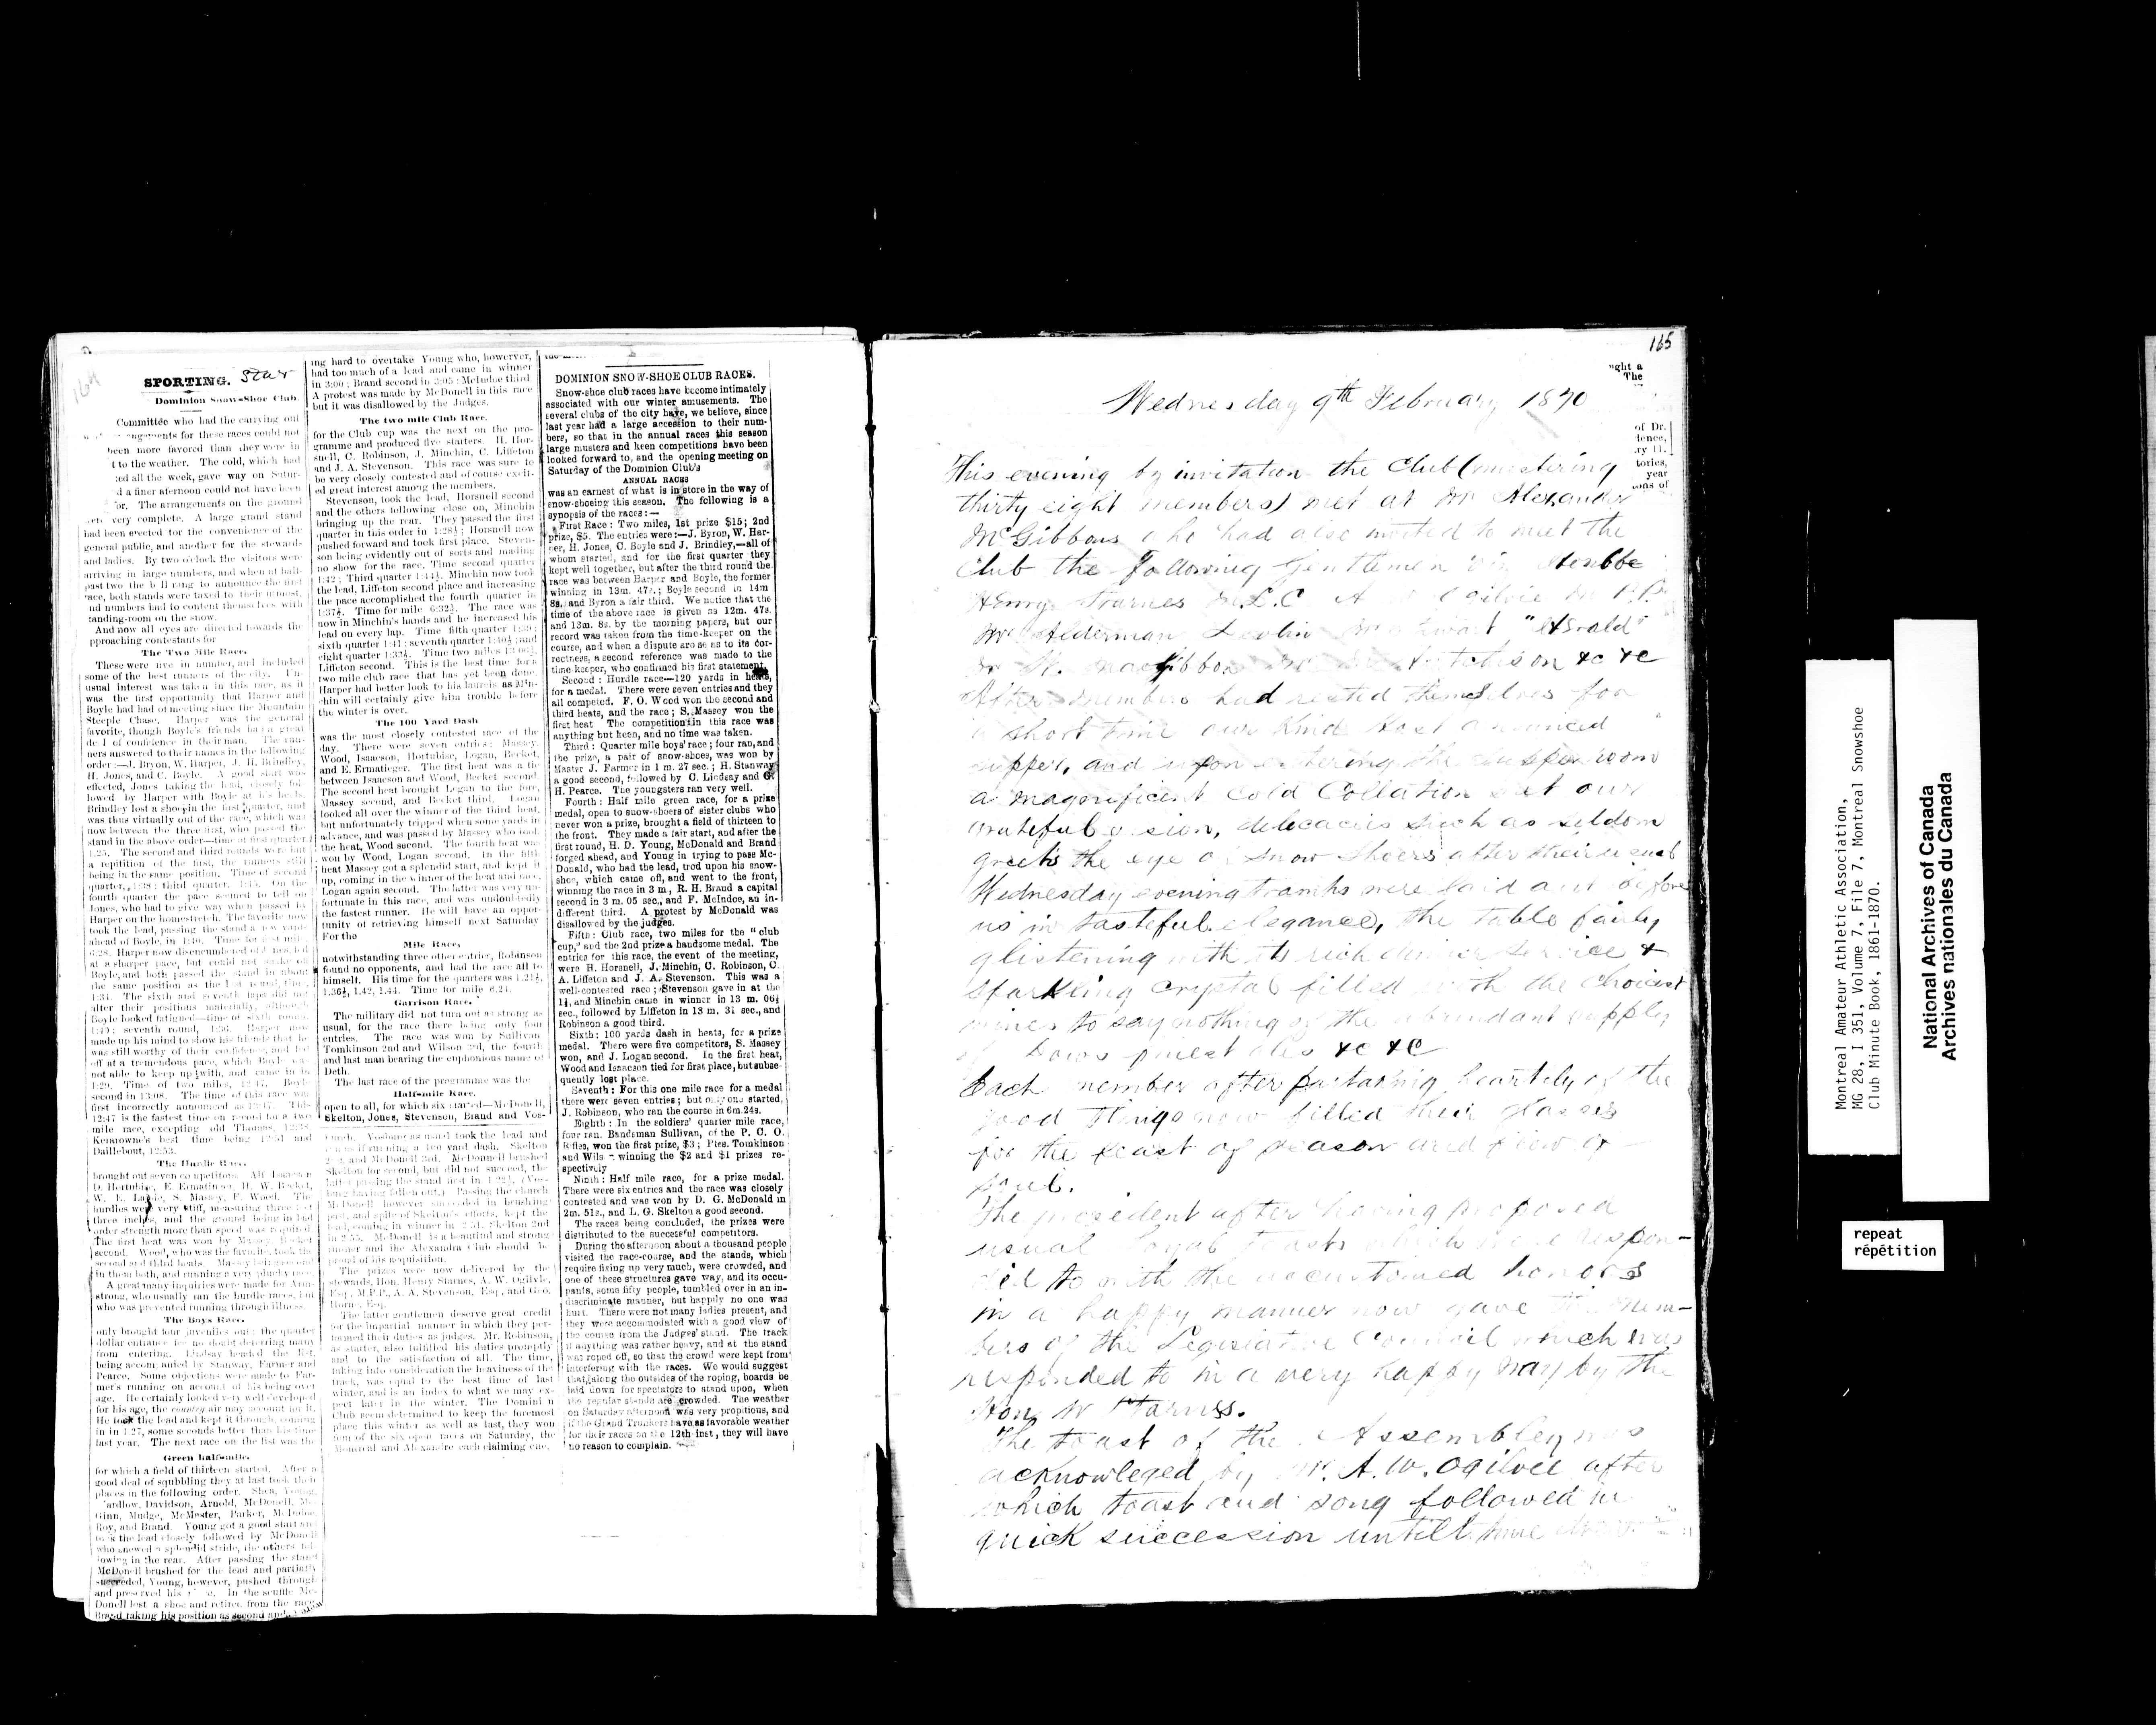 164
SPORTING. Star
Dominion Snow-Shoe Club
Committee who had the carrying out
for these races could not
been more favored than they were in
to the weather. The cold, which had
all the week, gave way on Satur-
a finer afternoon could not have been
for. The arrangements on the ground
very complete. A large grand stand
had been erected for the convenience of the
general public, and another for the steward-
and ladies. By two o'clock the visitors were
arriving in large numbers, and when at half-
past two the bell rang to announce the first
race, both stands were taxed to their utmost,
and numbers had to content themselves with
standing-room on the snow.
And now all eyes are directed towards the
approaching contestants for
The Two Mile Race.
These were five in number, and included
some of the best runners of the city. Un-
usual interest was taken in this race, as it
was the first opportunity that Harper and
Boyle had had of meeting since the Mountain
Steeple Chase. Harper was the general
favorite, though Boyle's friends had a great
deal of confidence in their man. The run-
ners answered to their names in the following
order:—J. Bryon, W. Harper, J. H. Brindley,
H. Jones, and C. Boyle. A good start was
effected, Jones taking the lead, closely fol-
lowed by Harper with Boyle at his heels.
Brindley lost a shoe in the first quarter, and
was thus virtually out of the race, which was
now between the three first, who passed the
stand in the above order—time of first quarter
1:25. The second and third rounds were but
a repitition of the first, the runners still
being in the same position. Time of second
quarter, 1:38; third quarter, 1:45. On the
fourth quarter the pace seemed to tell on
Jones, who had to give way when passed by
Harper on the homestretch. The favorite now
took the lead, passing the stand a few yards
ahead of Boyle, in 1:40. Time for first mile
6:28. Harper now disencumbered of Jones, led
at a sharper pace, but could not shake off
Boyle, and both passed the stand in about
the same position as the last round, time
1:34. The sixth and seventh laps did not
alter their positions materially, although
Boyle looked fatigued—time of sixth round,
1:43; seventh round, 1:36. Harper now
made up his mind to show his friends that he
was still worthy of their confidence, and led
off at a tremendous pace, which Boyle was
not able to keep up with, and came in in
1:29. Time of two miles, 12:47. Boyle
second in 13:08. The time of this race was
first incorrectly announced as 13:47. This
12:47 is the fastest time on record for a two
mile race, excepting old Thomas, 12:38
Keraronwe's best time being 12:51 and
Daillebout, 12:53.
The Hurdle Race.
brought out seven competitors. Alf Isaacson
D. Hortubise, E Ermatinger, H. W. Becket,
W. E. Logie, S. Massey, F. Wood. The
hurdles were very stiff, measuring three feet
three inches, and the ground being in bad
order strength more than speed was required.
The first heat was won by Massey, Becket
second. Wood, who was the favorite, took the
second and third heats. Massey being second
in them both, and running a very plucky race.
A great many inquiries were made for Arm-
strong, who usually ran the hurdle races, but
who was prevented running through illness.
The Boys Race.
only brought four juveniles out; the quarter
dollar entrance fee no doubt deterring many
from entering. Lindsay headed the list,
being accompanied by Stanway, Farmer and
Pearce. Some objections were made to Far-
mer's running on account of his being over
age. He certainly looked very well developed
for his age, the country air may account for it.
He took the lead and kept it through, coming
in in 1:27, some seconds better than his time
last year. The next race on the list was the
Green half-mile.
for which a field of thirteen started. After a
good deal of squbbling they at last took their
places in the following order. Shea, Young,
Wardlow, Davidson, Arnold, McDonell, Mc-
Ginn, Mudge, McMaster, Parker, McIndoe,
Roy, and Brand. Young got a good start and
took the lead closely followed by McDonell
who shewed a splendid stride, the others fol-
lowing in the rear. After passing the stand
McDonell brushed for the lead and partially
succeeded, Young, however, pushed through
and preserved his place. In the scuffle Mc-
Donell lost a shoe and retired from the race,
Brand taking his position as second and
ing hard to overtake Young who, howerver,
had too much of a lead and came in winner
in 3:00; Brand second in 3:05; McIndoe third
A protest was made by McDonell in this race
but it was disallowed by the Judges.
The two mile Club Race.
for the Club cup was the next on the pro-
gramme and produced five starters. H. Hor-
snell, C. Robinson, J. Minchin, C. Liffeton
and J. A. Stevenson. This race was sure to
be very closely contested and of course excit-
ed great interest among the members.
Stevenson, took the lead, Horsnell second
and the others following close on, Minchin
bringing up the rear. They passed the first
quarter in this order in 1:28½; Horsnell now
pushed forward and took first place. Steven-
son being evidently out of sorts and making
no show for the race, Time second quarter
1:42; Third quarter 1:44½. Minchin now took
the lead, Liffeton second place and increasing
the pace accomplished the fourth quarter in
1:37½. Time for mile 6:32½. The race was
now in Minchin's hands and he increased his
lead on every lap. Time fifth quarter 1:39;
sixth quarter 1:41; seventh quarter 1:40½; and
eight quarter 1:32½. Time two miles 13:06½,
Liffeton second. This is the best time for a
two mile club race that has yet been done
Harper had better look to his laurels as Min-
chin will certainly give him trouble before
the winter is over.
The 100 Yard Dash
was the most closely contested race of the
day. There were seven entries: Massey,
Wood, Isaacson, Hortubise, Logan, Becket,
and E. Ermatinger. The first heat was a tie
between Isaacson and Wood, Becket second.
The second heat brought Logan to the fore,
Massey second, and Becket third. Logan
looked all over the winner of the third heat,
but unfortunately tripped when some yards in
advance, and was passed by Massey who took
the heat, Wood second. The fourth heat was
won by Wood, Logan second. In the fifth
heat Massey got a splendid start, and kept it
up, coming in the winner of the heat and race,
Logan again second. The latter was very un-
fortunate in this race, and was undoubtedly
the fastest runner. He will have an oppor-
tunity of retrieving himself next Saturday
For the
Mile Race,
notwithstanding three other entries, Robinson
found no opponents, and had the race all to
himself. His time for the quarters was 1.21½,
1.36½, 1.42, 1.44. Time for mile 6.24.
Garrison Race.
The military did not turn out as strong as
usual, for the race there being only four
entries. The race was won by Sullivan
Tomkinson 2nd and Wilson 3rd, the fourth
and last man bearing the euphonious name of
Deth.
The last race of the programme was the
Half-mile Race.
open to all, for which six started—McDonell,
Skelton, Jones, Stevenson, Brand and Vos-
burgh. Vosburg as usual took the lead and
ran as if running a 100 yard dash, Skelton
2nd, and McDonell 3rd. McDonnell brushed
Skelton for second, but did not succeed, the
latter passing the stand first in 1:22½, (Vos-
burg having fallen out.) Passing the church
McDonell however succeeded in brushing
past, and spite of Skelton's efforts, kept the
lead, coming in winner in 2:51. Skelton 2nd
in 2:55. McDonell is a beautiful and strong
runner and the Alexandra Club should be
proud of his acquisition.
The prizes were now delivered by the
stewards, Hon. Henry Starnes, A. W. Ogilvie,
Esq., M.P.P., A. A. Stevenson, Esq., and Geo.
Horne, Esq.
The latter gentlemen deserve great credit
for the impartial manner in which they per-
formed their duties as judges. Mr. Robinson,
as starter, also fulfilled his duties promptly
and to the satisfaction of all. The time,
taking into consideration the heaviness of the
track, was equal to the best time of last
winter, and is an index to what we may ex-
pect later in the winter. The Dominion
Club seem determined to keep the foremost
place this winter as well as last, they won
four of the six open races on Saturday, the
Montreal and Alexandre each claiming one.
DOMINION SNOW-SHOE CLUB RACES.
Snow-shoe club races have become intimately
associated with our winter amusements. The
several clubs of the city have, we believe, since
last year had a large accession to their num-
bers, so that in the annual races this season
large musters and keen competitions have been
looked forward to, and the opening meeting on
Saturday of the Dominion Club's
ANNUAL RACES
was an earnest of what is in store in the way of
snow-shoeing this season. The following is a
synopsis of the races:—
First Race: Two miles, 1st prize $15; 2nd
prize, $5. The entries were:—J. Byron, W. Har-
per, H. Jones, C. Boyle and J. Brindley,—all of
whom started, and for the first quarter they
kept well together, but after the third round the
race was between Harper and Boyle, the former
winning in 13m. 47s.; Boyle second in 14m
8s, and Byron a fair third. We notice that the
time of the above race is given as 12m. 47s.
and 13m. 8s. by the morning papers, but our
record was taken from the time-keeper on the
course, and when a dispute arose as to its cor-
rectness, a second reference was made to the
time keeper, who confirmed his first statement.
Second: Hurdle race—120 yards in heats,
for a medal. There were seven entries and they
all competed. F. O. Wood won the second and
third heats, and the race; S. Massey won the
first heat The competition in this race was
anything but keen, and no time was taken.
Third: Quarter mile boys' race; four ran, and
the prize, a pair of snow-shoes, was won by
Master J. Farmer in 1 m. 27 sec.; H. Stanway
a good second, followed by C. Lindsay and G.
H. Pearce. The youngsters ran very well.
Fourth: Half mile green race, for a prize
medal, open to snow-shoers of sister clubs who
never won a prize, brought a field of thirteen to
the front. They made a fair start, and after the
first round, H. D. Young, McDonald and Brand
forged ahead, and Young in trying to pass Mc-
Donald, who had the lead, trod upon his snow-
shoe, which came off, and went to the front,
winning the race in 3 m., R. H. Brand a capital
second in 3 m. 05 sec., and F. McIndoe, an in-
different third. A protest by McDonald was
disallowed by the judges.
Fifth: Club race, two miles for the "club
cup," and the 2nd prize a handsome medal. The
entries for this race, the event of the meeting,
were H. Horsnell, J. Minchin, C. Robinson, C.
A. Liffeton and J. A. Stevenson. This was a
well-contested race; Stevenson gave in at the
1¼, and Minchin came in winner in 13 m. 06½
sec., followed by Liffeton in 13 m. 31 sec., and
Robinson a good third.
Sixth: 100 yards dash in heats, for a prize
medal. There were five competitors, S. Massey
won, and J. Logan second. In the first heat,
Wood and Isaacson tied for first place, but subse-
quently lost place.
Seventh: For this one mile race for a medal
there were seven entries; but only one started,
J. Robinson, who ran the course in 6m. 24s.
Eighth: In the soldiers' quarter mile race,
four ran. Bandsman Sullivan, of the P. C. O
Rifles, won the first prize, $3; Ptes. Tomkinson
and Wilson winning the $2 and $1 prizes re-
spectively
Ninth: Half mile race, for a prize medal.
There were six entries and the race was closely
contested and was won by D. G. McDonald in
2m. 51s., and L. G. Skelton a good second.
The races being concluded, the prizes were
distributed to the successful competitors.
During the afternoon about a thousand people
visited the race-course, and the stands, which
require fixing up very much, were crowded, and
one of these structures gave way, and its occu-
pants, some fifty people, tumbled over in an in-
discriminate manner, but happily no one was
hurt. There were not many ladies present, and
they were accommodated with a good view of
the course from the Judges' stand. The track
if anything was rather heavy, and at the stand
was roped off, so that the crowd were kept from
interfering with the races. We would suggest
that along the outsides of the roping, boards be
laid down for spectators to stand upon, when
the regular stands are crowded. The weather
on Saturday afternoon was very propitious, and
if the Grand Trunkers have as favorable weather
for their races on the 12th inst, they will have
no reason to complain.
165
ught a
The
of Dr.
dence,
ry 11.
tories,
year
ons of
Wednesday 9th February 1870
This evening by invitation the Club (mustering
thirty eight members) met at Mr Alexander
McGibbons who had also invited to meet the
Club the following Gentlemen viz
Henry Starnes M.L.C A W Ogilvie M P.P.
Mr Alderman "Herald"
&c &c
After members had rested themselves for
a short time our kind host announced
supper, and upon entering the supper room
a magnificent Cold Collation met our
grateful vision, delecacies such as seldom
greets the eye of Snow Shoers after their usual
Wednesday evening tramps were laid out before
us in tasteful elegance, the table fairly
glistening with its rich dinner service &
sparkling crystal filled with the choicest
wines to say nothing of the abundant supply
of Dows finest ales &c &c
Each member after partaking heartily of the
good things now filled their glasses
for the feast of reason and flow of
soul.
The president after having proposed
usual loyal toasts which were respon-
ded to with the accustomed honors
in a happy manner now gave the Mem-
bers of the Legislative Council which was
responded to in a very happy way by the
Hon Mr Starnes.
The toast of the Assembley was
acknowleged by Mr. A. W. Ogilvee after
which toast and song followed in
quick succession untill time
Montreal Amateur Athletic Association,
MG 28, I 351, Volume 7, File 7, Montreal Snowshoe
Club Minute Book, 1861-1870.
National Archives of Canada
Archives nationales du Canada
repeat
répétition